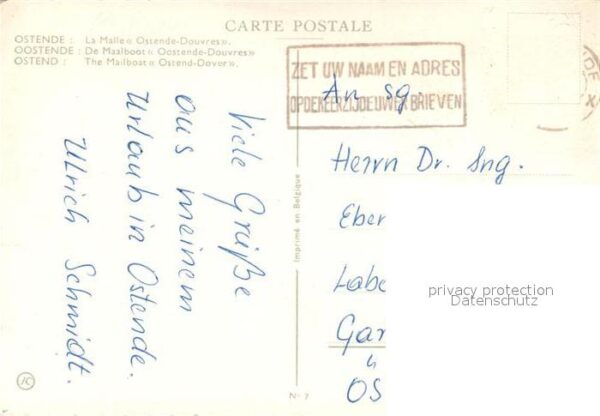 CARTE POSTALE
OSTENDE : La Malle « Ostende-Douvres ».
OOSTENDE : De Maalboot « Oostende-Douvres »
OSTEND : The Mailboat « Ostend-Dover ».
ZET UW NAAM EN ADRES
OP DE KEERZIJDE UWER BRIEVEN
An Sg.
Herrn Dr. Ing.
Eber
Labe
Gar
OS
Viele Grüße
aus meinem
Urlaub in Ostende.
Ulrich Schmidt.
Imprimé en Belgique
privacy protection
Datenschutz
N° 7